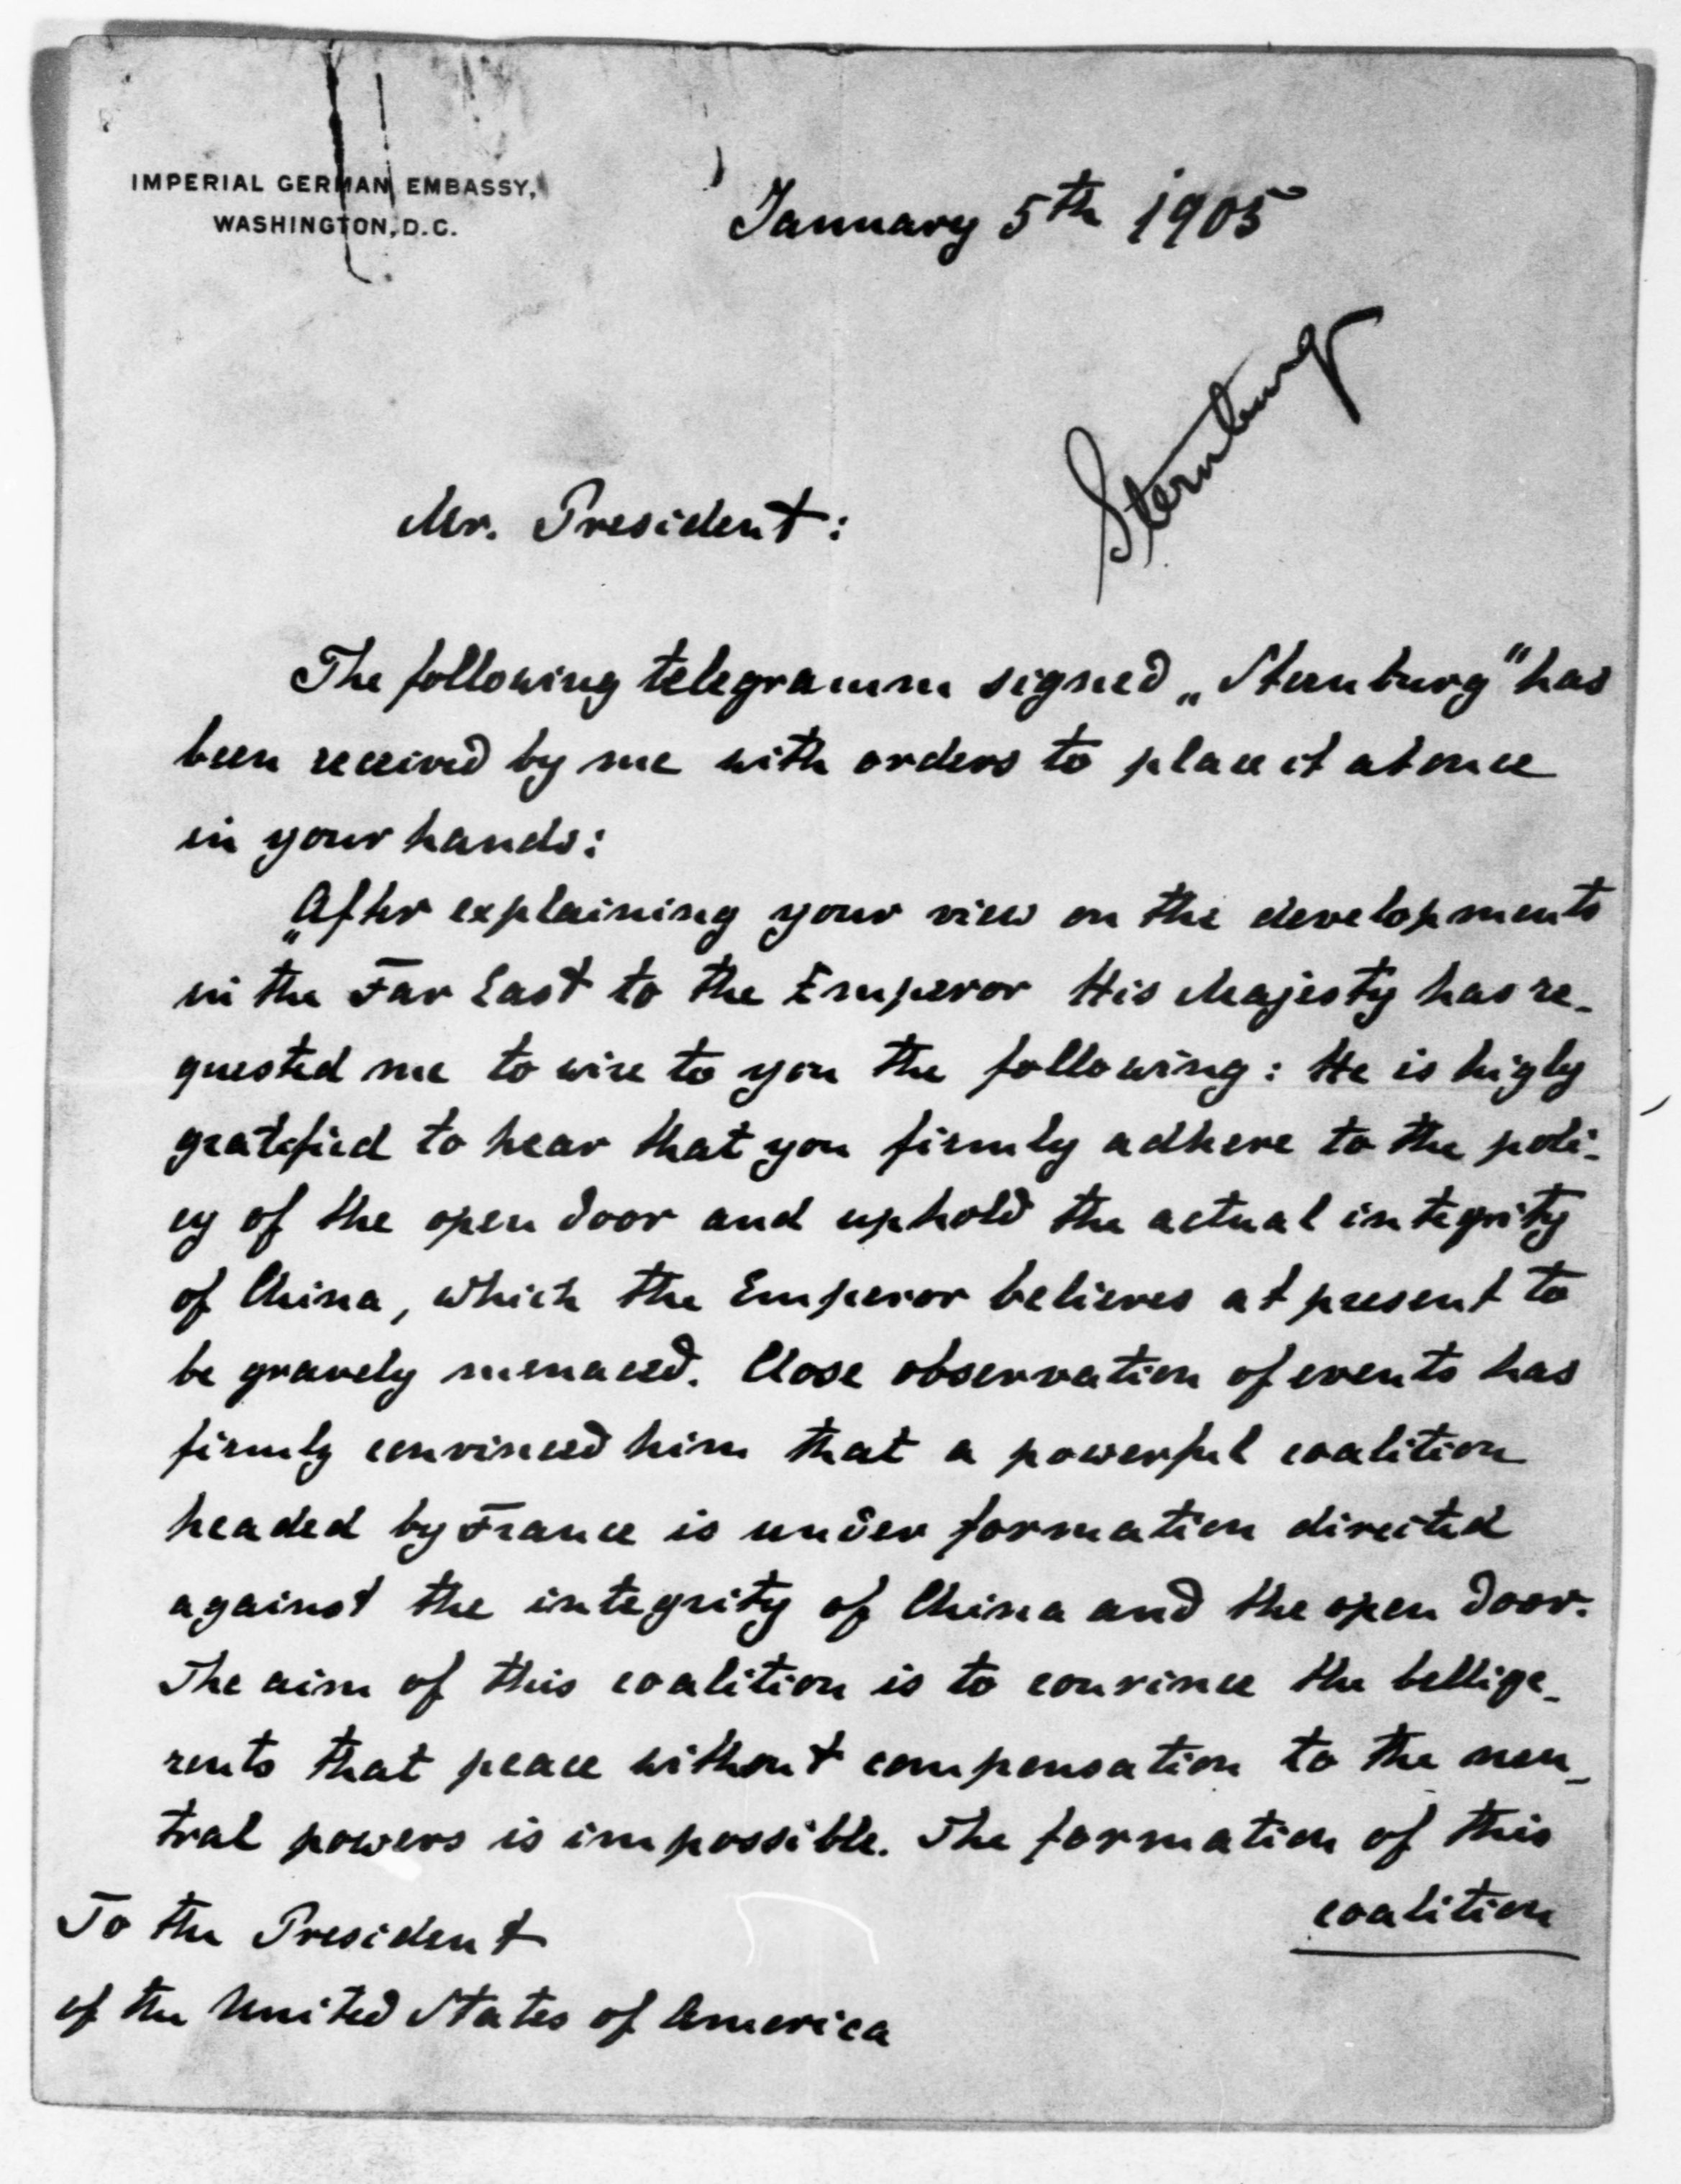 IMPERIAL GERMAN EMBASSY,
WASHINGTON, D.C.
January 5th 1905
Sternburg
Mr. President:
The following telegramm signed „Sternburg" has
been received by me with orders to place it at once
in your hands:
„After explaining your view on the developments
in the Far East to the Emperor His Majesty has re-
quested me to wire to you the following: He is higly
gratified to hear that you firmly adhere to the poli-
cy of the open door and uphold the actual integrity
of China, which the Emperor believes at present to
be gravely menaced. Close observation of events has
firmly convinced him that a powerful coalition
headed by France is under formation directed
against the integrity of China and the open door.
The aim of this coalition is to convince the bellige-
rents that peace without compensation to the neu-
tral powers is impossible. The formation of this
coalition
To the President
of the United States of America